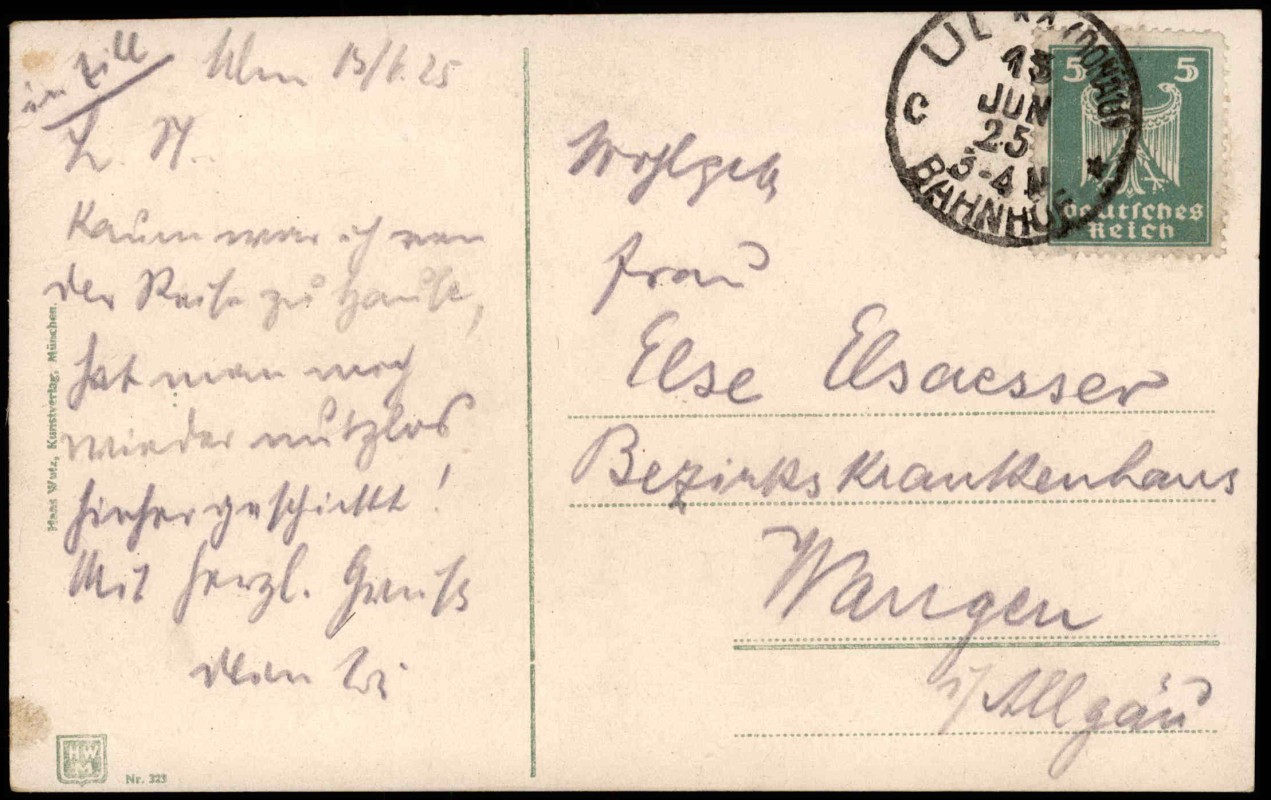 Ulm 13/6.25
L. M.
Kaum war ich von
der Reise zu Hause,
hat man mich
wieder nutzlos
hierher geschickt!
Mit herzl. Gruß
Dein
Hans Wutz, Kunstverlag, München.
HWM
Nr. 323
ULM (DONAU)
13
JUN
25
3-4 N
C
*
BAHNHOF
5 5
Deutsches
Reich
Wohlgeb
Frau
Else Elsaesser
Bezirkskrankenhaus
Wangen
i/Allgäu